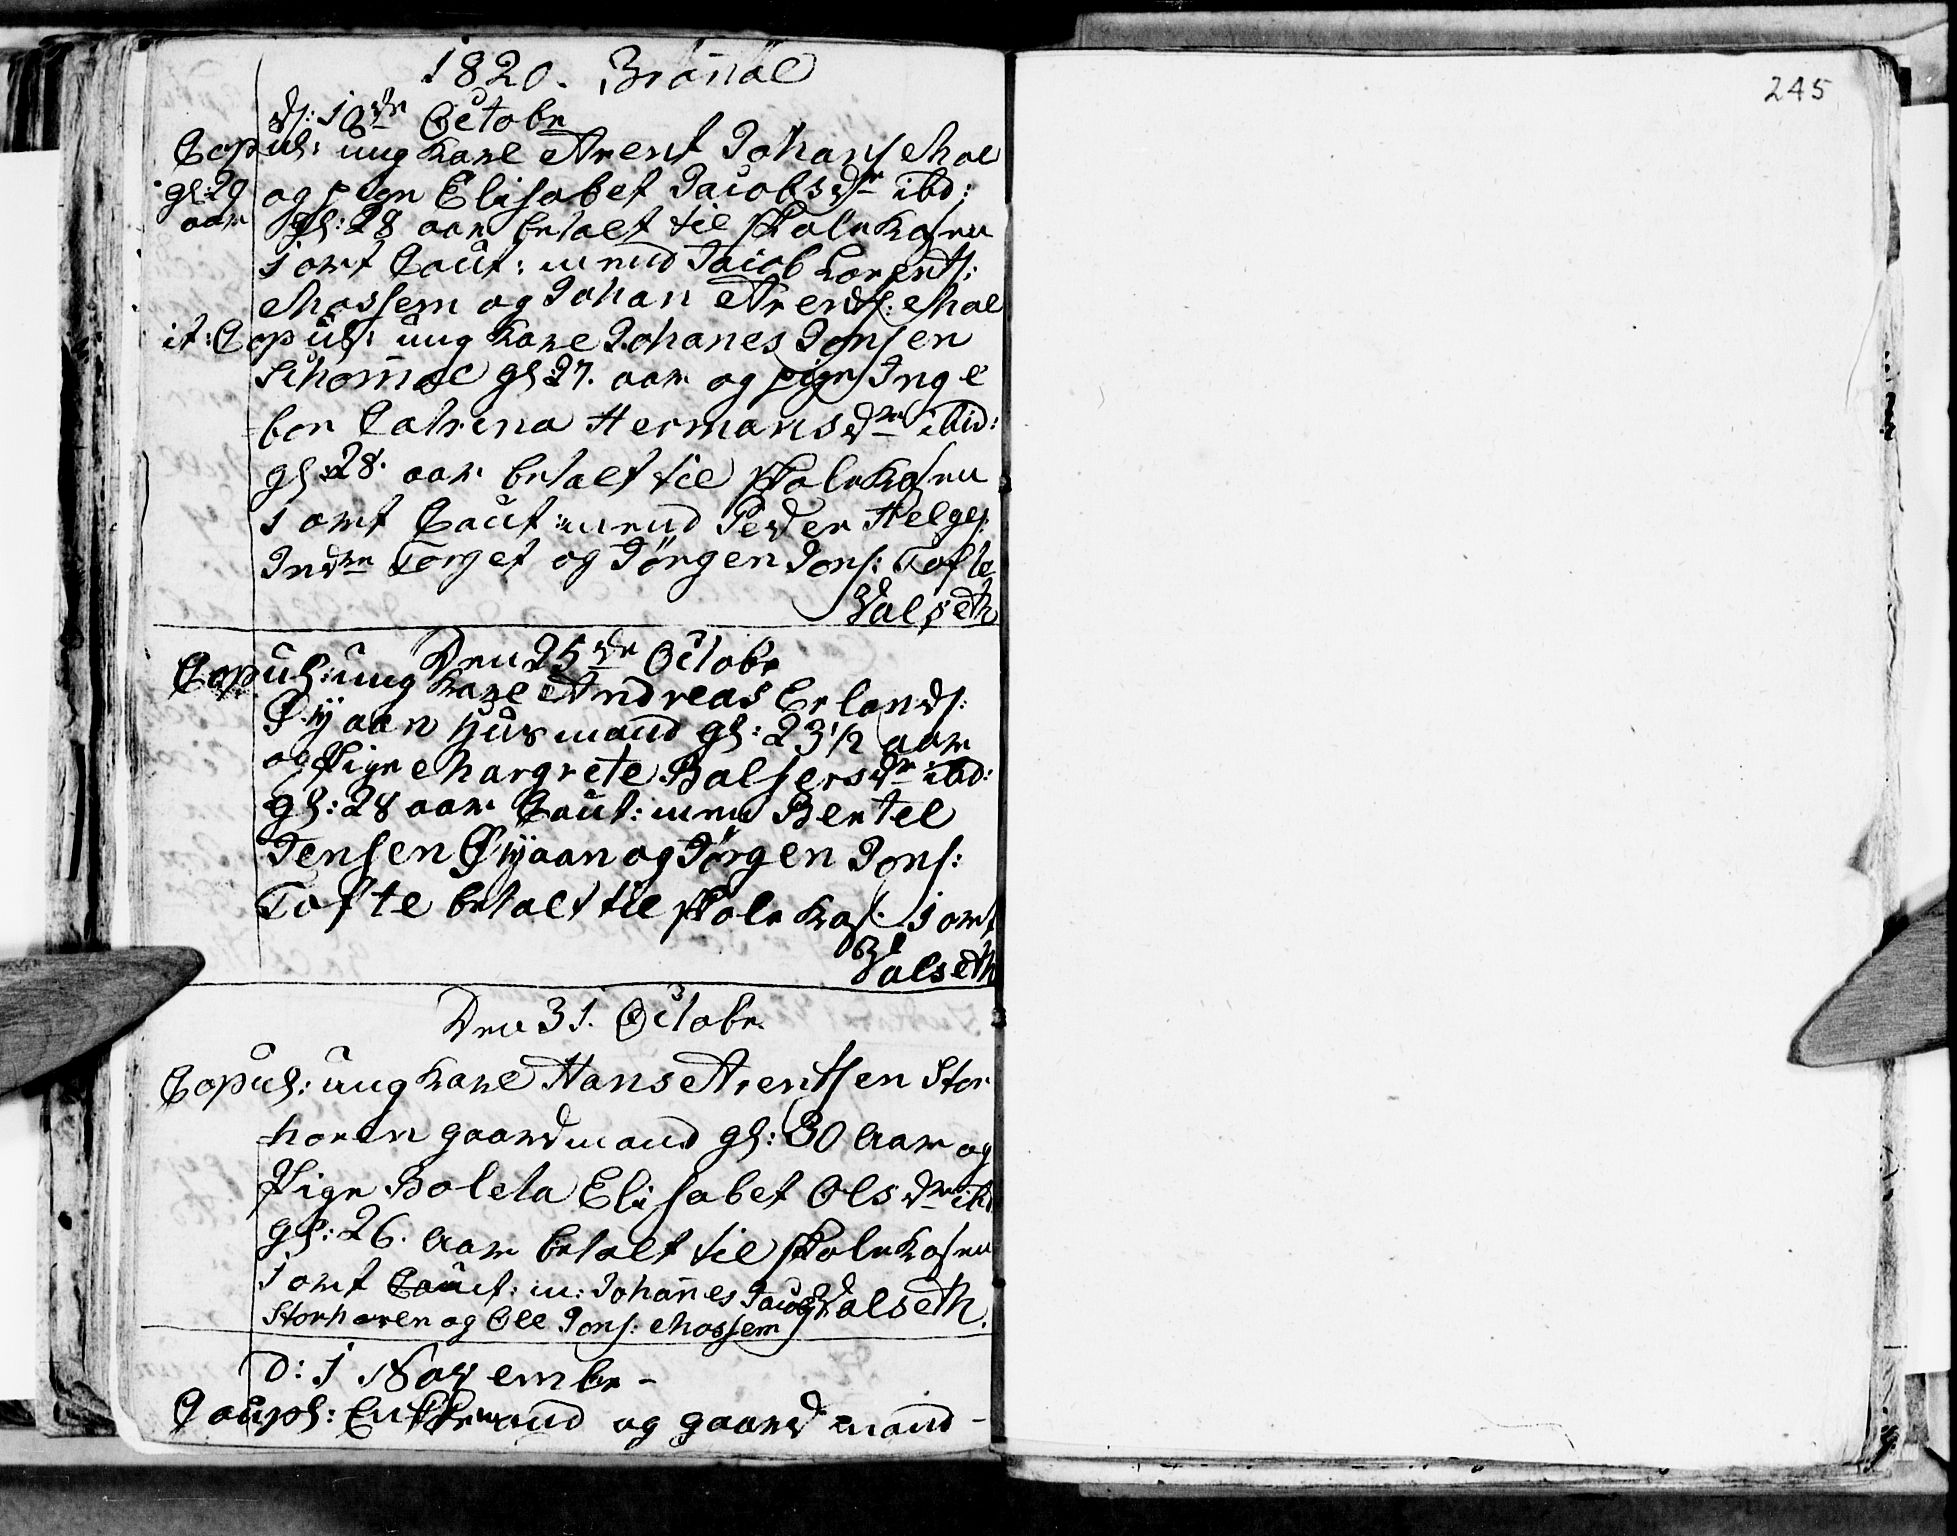 1820. Brönöe
d: 10de Octobr
Copul: ung Karl Arent Johans Moe
gl: 29 aar
og pige Elisabet Jacobsdr ibd:
gl: 28 aar betalt til skolekassen
1 ort Caut: mend Jacob Lorents:
Mossem og Johan Arents: Moe
it: Copul: ung Karl Johanes Jonsen
gl 27. aar og pige Inge
bor Catrina Hermansdr ibid:
gl 28. aar betalt til skolekassen
1 ort Caut: mend Peder Helges:
Indre Torget og Jörgen Jons: Tofte
Valseth
Den 25de Octobr
Copul: ung Karl Andreas Erlands:
Øÿaan Husmand gl: 23 1/2 aar
og Pige Margrete Balsersdr ibd:
gl: 28 aar Caut: men Bertel
Jensen Øÿaan og Jörgen Jons:
Tofte betalt til skole Kas: 1 ort
Valseth
Den 31. Octobr
Copul: ung Karl Hans Arentsen Stor
horen gaardmand gl: 30 Aar og
Pige Boleta Elisabet Olsdr ibd
gl: 26. Aar betalt til skolekassen
1 ort Caut: m: Johannes Jacobs Valseth.
Storhoren og Ole Jons: Mossem
D: 1 Novembr -
Coupl: Enkemand og gaard mand -
245